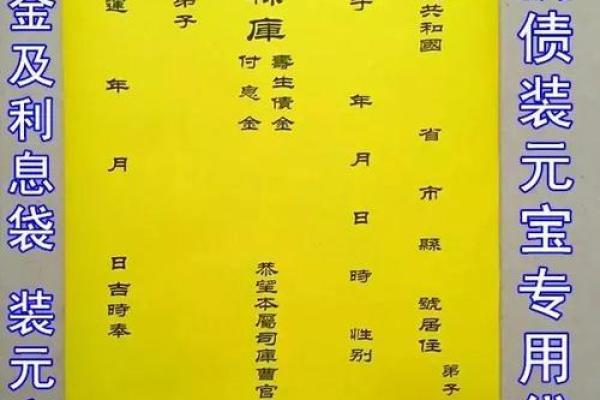 债装元宝专用
共和國 省 市 縣 號居住 弟子
子 年 月 日 時 性别
庫
壽生債金
付息金
恭望本屬司庫曹官
弟子
運 年 月 日吉時奉
金及利息袋 装元